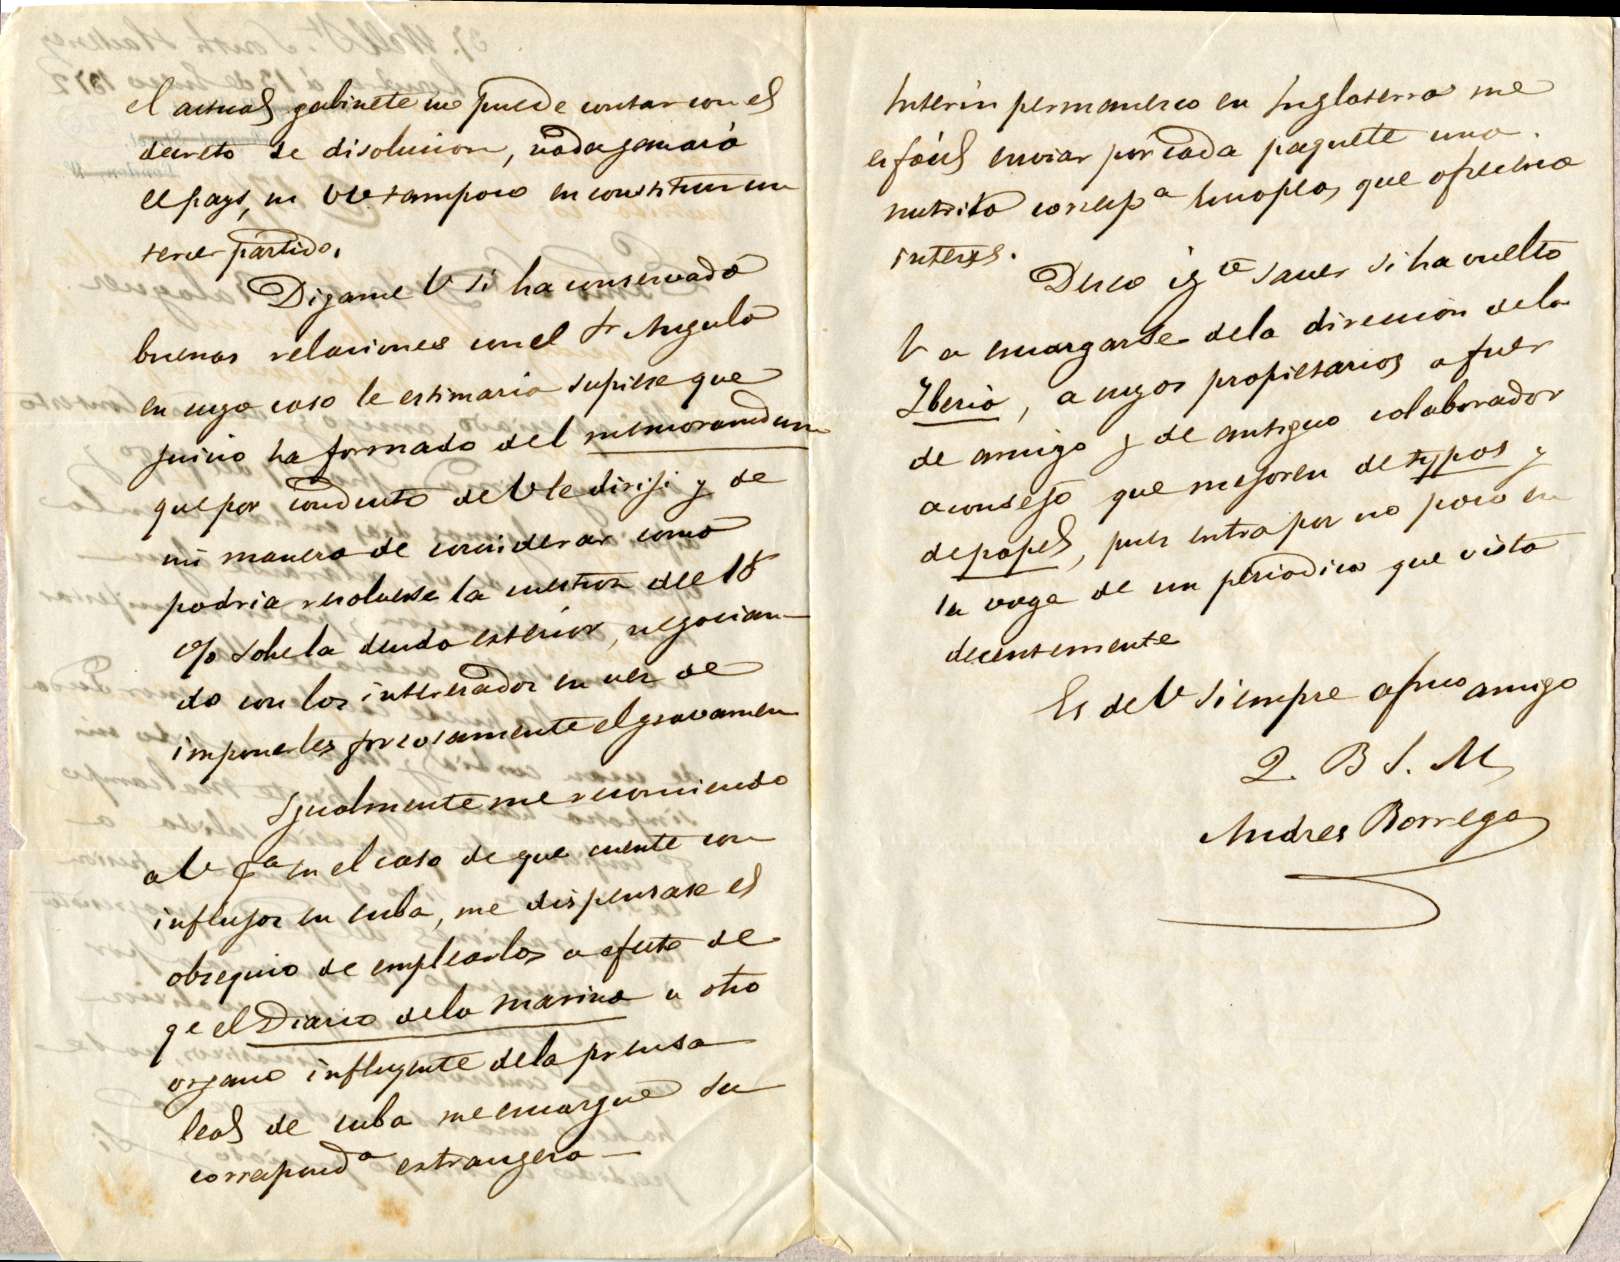 el actual gabinete no puede contar con el
decreto de disolucion, nada ganará
el pays, ni VV tampoco en constituir un
tercer partido.
Digame V si ha conservado
buenas relaciones con el Sr Angulo
en cuyo caso le estimaria supiese que
juicio ha formado del memorandum
que por conducto de V le diriji y de
mi manera de considerar como
podria resolverse la cuestion del 18
% sobe la deuda exterior, negocian-
do con los interesados en vez de
imponerles forzosamente el gravamen
Igualmente me recomiendo
a V pa en el caso de que cuente con
influjos en Cuba, me dispensase el
obsequio de emplearlos a efecto de
qe el Diario de la Marina u otro
organo influyente de la prensa
leal de Cuba me encargue su
correspond.a estrangera —
Interin permanezco en Inglaterra me
es fácil enviar por cada paquete una
nutrida corresp.a Europea, que ofrezca
interes.
Deseo ig.te saver si ha vuelto
V a encargarse de la direccion de la
Iberia, a cuyos propietarios a fuer
de amigo y de antiguo colaborador
aconsejo que mejoren de typos y
de papel, pues entra por no poco en
la voga de un periodico que vista
decentemente
Es de V siempre afmo amigo
Q. B S. M
Andres Borrego